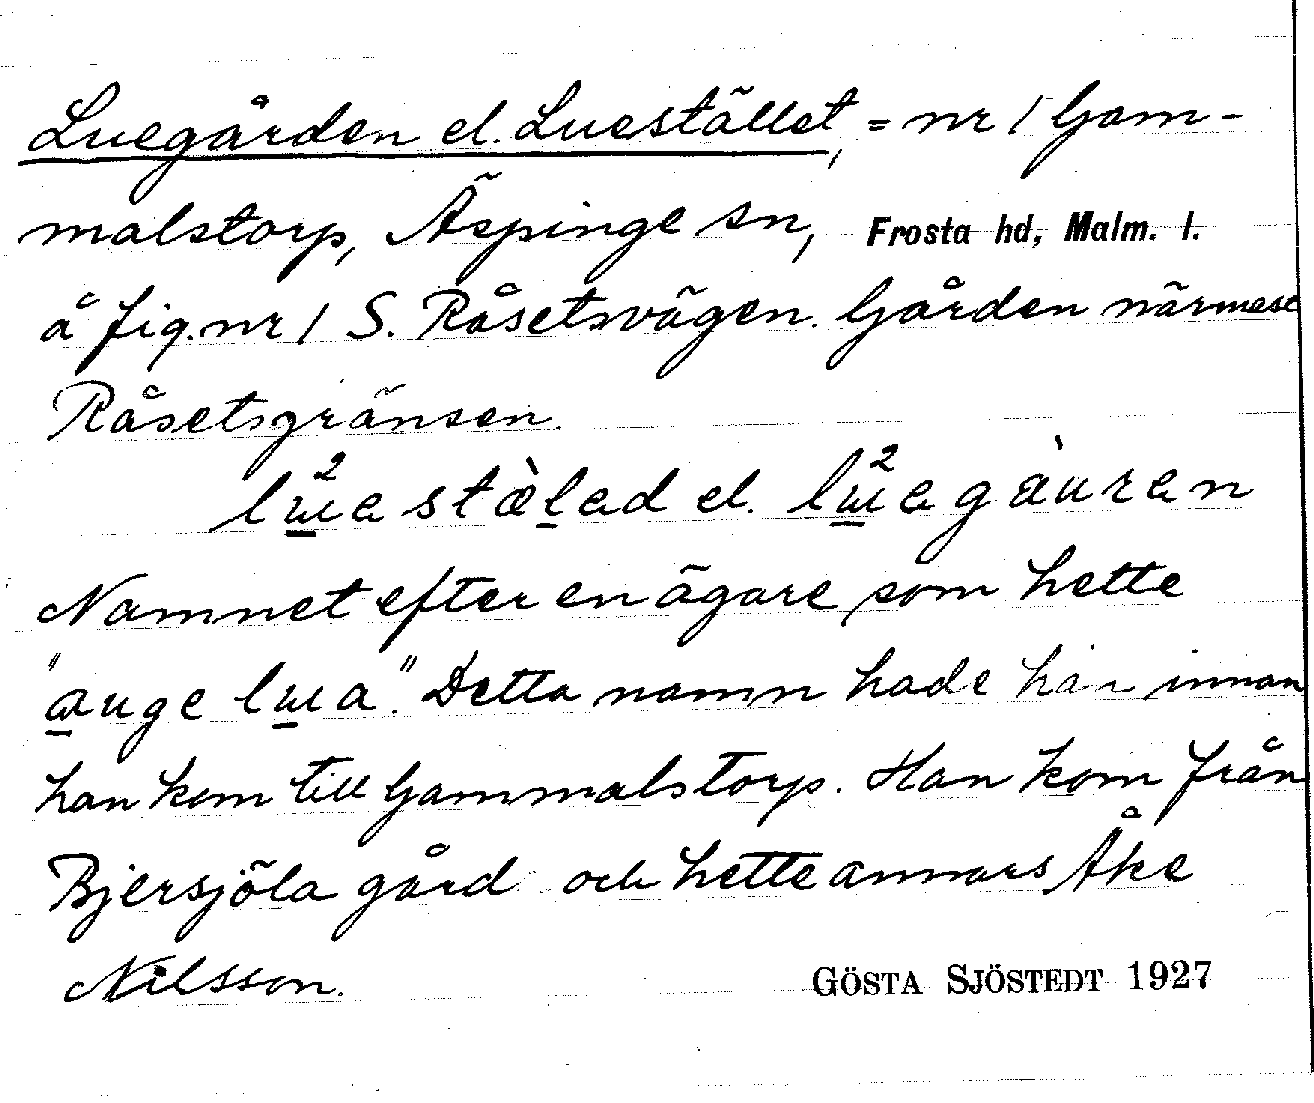 Luegården el. Luestället, = nr 1 Gam-
malstorp, Äspinge sn, Frosta hd, Malm. l.
å fig. nr 1 S. Råsetsvägen. Gården närmast
Råsetsgränsen.
lɯ̲²ɐstæ̀l̲ɐd el. lɯ̲²ɐgàurɐn
Namnet efter en ägare som hette
"a̲uge lɯ̲a". Detta namn hade han innan
han kom till Gammalstorp. Han kom från
Bjersjöla gård och hette annars Åke
Nilsson. GÖSTA SJÖSTEDT 1927